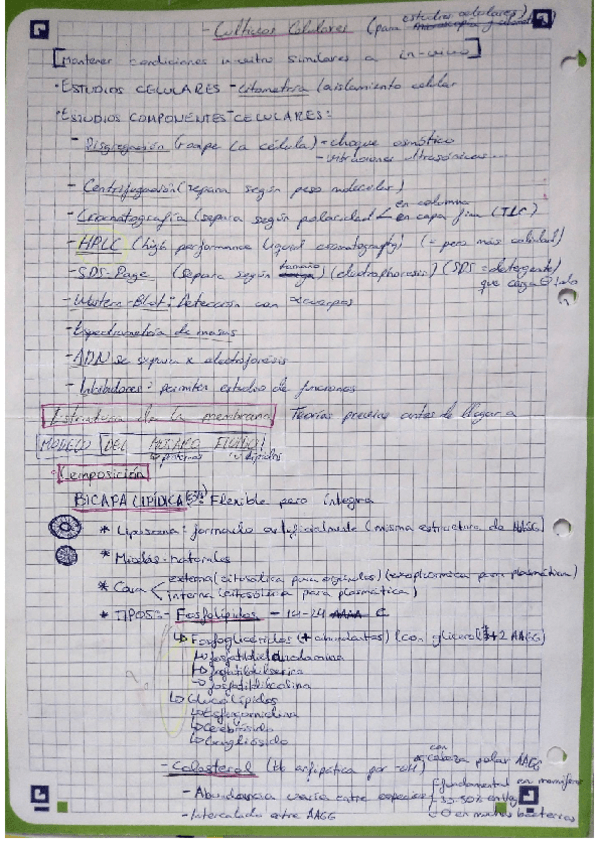 - Cultivos Celulares (para estudios celulares)
[Mantener condiciones in-vitro similares a in-vivo]
· ESTUDIOS CELULARES - Citometría / aislamiento celular
· ESTUDIOS COMPONENTES CELULARES:
- Disgregación (rompe la célula) - choque osmótico
- vibraciones ultrasónicas...
- Centrifugación (separa según peso molecular)
- Cromatografía (separa según polaridad < en columna
en capa fina (TLC)
- HPLC (high performance liquid cromatography) (= pero más calidad)
- SDS-Page (separa según tamaño) (electrophorosis) (SDS = detergente)
que carga
- Western-Blot: Detección con
- Espectrometría de masas
- ADN se separa x electroforésis
- Inhibidores: permiten estudio de funciones
Estructura de la membrana Teorías previas antes de llegar a
MODELO DEL MOSAICO FLUIDO
↳ proteínas ↳ lípidos
· Composición
BICAPA LIPÍDICA: Flexible pero íntegra
* Liposoma: formado artificialmente (misma estructura de AAGG)
* Micelas: naturales
* Cara < externa (citosólica para orgánulos) (exoplásmica para plasmática)
interna (citosólica para plasmática)
* TIPOS: - Fosfolípidos - 14-24 C
↳ Fosfoglicéridos (+ abundantes) (con glicerol + 2 AAGG)
↳ fosfatidiletanolamina
↳ fosfatidilserina
↳ fosfatidilcolina
↳ Glucolípidos
↳ Esfingomielina
↳ Cerebrósido
↳ Gangliósido
- Colesterol (lib anfipática por -OH) con cabeza polar AAGG
- Abundancia varía entre especies fundamental en mamíferos
30-50% en
0 en muchas bacterias
- Intercalado entre AAGG